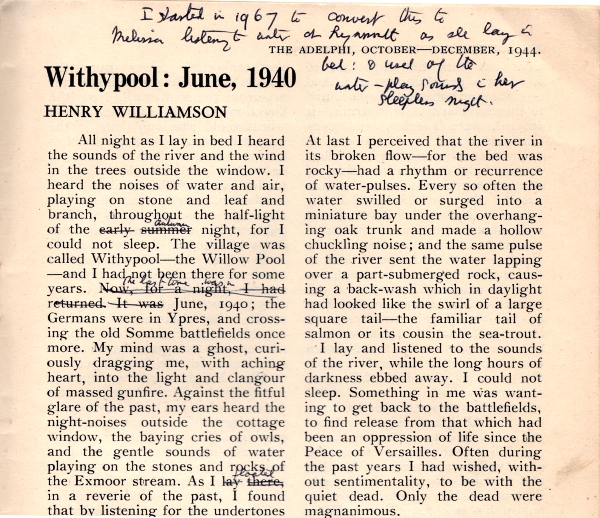 I started in 1967 to convert this to
Melissa listening to water at Lynmouth as she lay in
THE ADELPHI, OCTOBER—DECEMBER, 1944.
bed: & used up the
water-play sounds in her
sleepless night.
Withypool: June, 1940
HENRY WILLIAMSON
All night as I lay in bed I heard
the sounds of the river and the wind
in the trees outside the window. I
heard the noises of water and air,
playing on stone and leaf and
branch, throughout the half-light
autumn
of the early summer night, for I
could not sleep. The village was
called Withypool—the Willow Pool
—and I had not been there for some
the last time was in
years. Now, for a night, I had
returned. It was June, 1940; the
Germans were in Ypres, and cross-
ing the old Somme battlefields once
more. My mind was a ghost, curi-
ously dragging me, with aching
heart, into the light and clangour
of massed gunfire. Against the fitful
glare of the past, my ears heard the
night-noises outside the cottage
window, the baying cries of owls,
and the gentle sounds of water
playing on the stones and rocks of
floated
the Exmoor stream. As I lay there,
in a reverie of the past, I found
that by listening for the undertones
At last I perceived that the river in
its broken flow—for the bed was
rocky—had a rhythm or recurrence
of water-pulses. Every so often the
water swilled or surged into a
miniature bay under the overhang-
ing oak trunk and made a hollow
chuckling noise; and the same pulse
of the river sent the water lapping
over a part-submerged rock, caus-
ing a back-wash which in daylight
had looked like the swirl of a large
square tail—the familiar tail of
salmon or its cousin the sea-trout.
I lay and listened to the sounds
of the river, while the long hours of
darkness ebbed away. I could not
sleep. Something in me was want-
ing to get back to the battlefields,
to find release from that which had
been an oppression of life since the
Peace of Versailles. Often during
the past years I had wished, with-
out sentimentality, to be with the
quiet dead. Only the dead were
magnanimous.